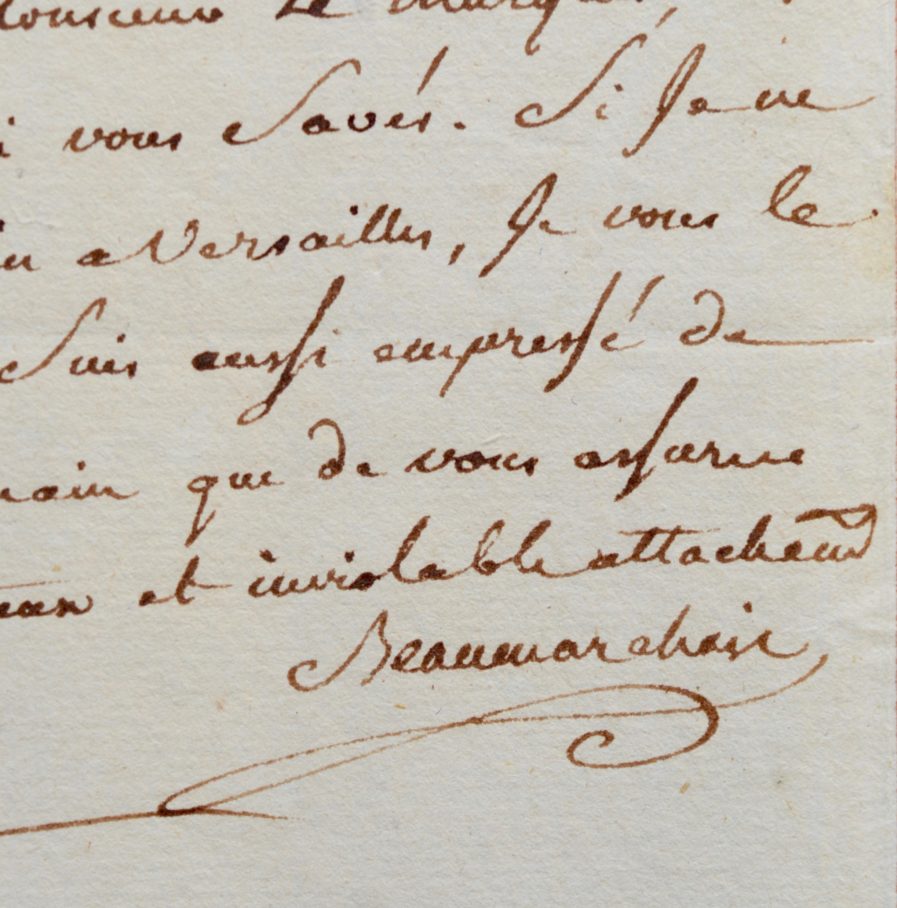 Monsieur Le Marquis,
i vous Savés. Si Je ne
a Versailles, Je vous le
Suis aussi empressé de
main que de vous assurer
et inviolable attachemt
Beaumarchais